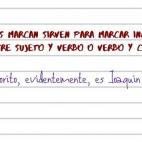 S MARCAN SIRVEN PARA MARCAR IN
RE SUJETO Y VERBO O VERBO Y C
orito, evidentemente, es Joaquin